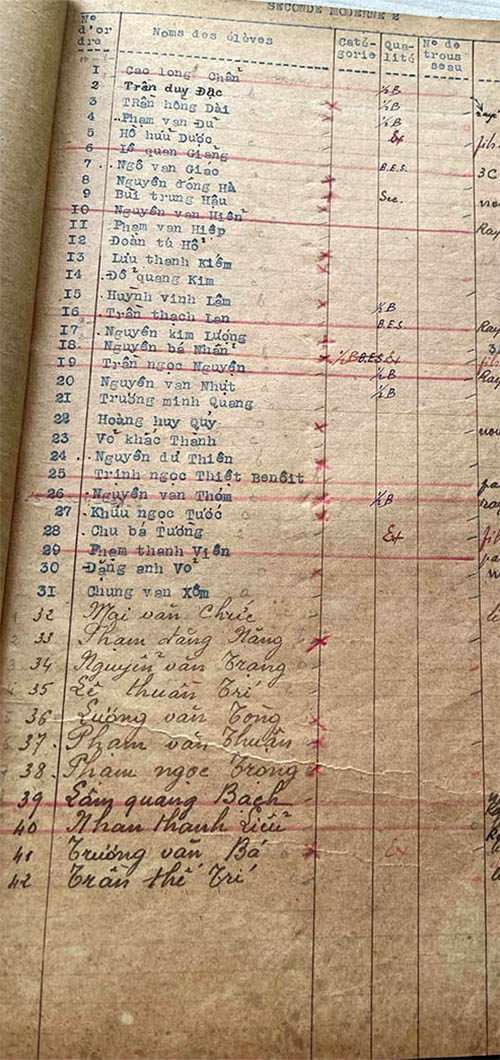 SECONDE MODERNE 2
N° d'or dre Noms des élèves Caté- gorie Qua- lité N° de trous seau
1 Cao long Chẩn
2 Trần duy Đạc ½B
3 TRần hồng Dài x ½B
4 Phạm van Dư ½B
5 Hồ hữu Dược Ex fils
6 Lê quan Giảng
7 Ngô van Giao B.E.S. 3C
8 Nguyễn đồng Hà x
9 Bùi trung Hậu x Sec.
10 Nguyễn van Hiền x
11 Phạm van Hiệp Ray
12 Đoàn tú Hổ
13 Lưu thanh Kiếm x
14 Đổ quang Kim
15 Huỳnh vinh Lâm x ½B
16 Trần thạch Lan B.E.S.
17 Nguyễn kim Lượng x Ray
18 Nguyễn bá Nhẩn 3
19 Trần ngọc Nguyện x ½B B.E.S. Ex fils
20 Nguyễn van Nhựt ½B Ray
21 Trương minh Quang ½B
22 Hoàng huy Quý x
23 Võ khắc Thành
24 Nguyễn dư Thiên x
25 Trinh ngọc Thiết Benôit
26 Nguyễn van Thóm x ½B
27 Khưu ngọc Tước x
28 Chu bá Tường Ex
29 Phạm thanh Viên
30 Đặng anh Võ x
31 Chung van Xồm
32 Mai văn Chức
33 Phạm đăng Năng x
34 Nguyễn văn Trang
35 Lê thuần Trí
36 Lương văn Tòng x
37 Phạm văn Thuần x
38 Phạm ngọc Trong x
39 Lâm quang Bach
40 Nhan thanh Liễu
41 Trương văn Bá x Ex
42 Trần thế Trí